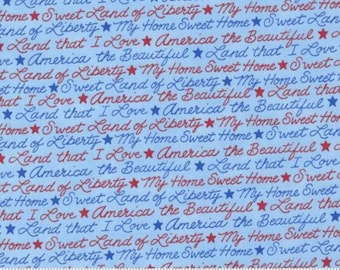 Sweet Land of Liberty ★ My Home Sweet Home ★
Land that I Love ★ America the Beautiful ★
America the Beautiful ★ Land that I Love
Sweet Land of Liberty ★ My Home Sweet Home ★
My Home Sweet Home ★ Sweet Land of Liberty ★
Land that I Love ★ America the Beautiful ★
America the Beautiful ★ Land that I Love ★
Sweet Land of Liberty ★ My Home Sweet Home ★
My Home Sweet Home ★ Sweet Land of Liberty
Land that I Love ★ America the Beautiful ★
America the Beautiful ★ Land that I Love ★
Land of Liberty ★ My Home Sweet Home ★
Home Sweet Home ★ Sweet Land of Liberty ★
that I Love ★ America the Beautiful ★
the Beautiful ★ Land that I Love ★
Home ★ Sweet Land of Liberty ★